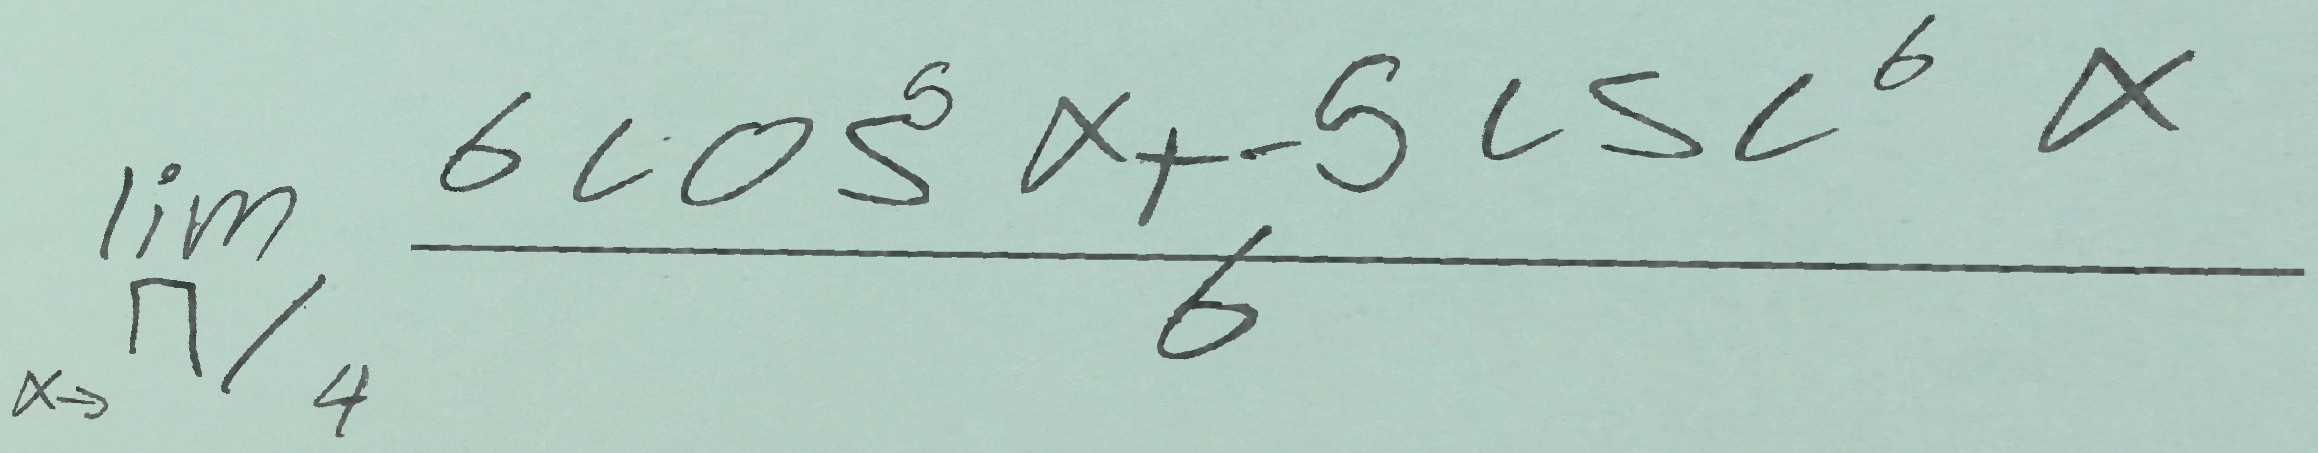 \lim_{x \to \pi/4} \frac{6 \cos^5 x + -5 \csc^6 x}{6}